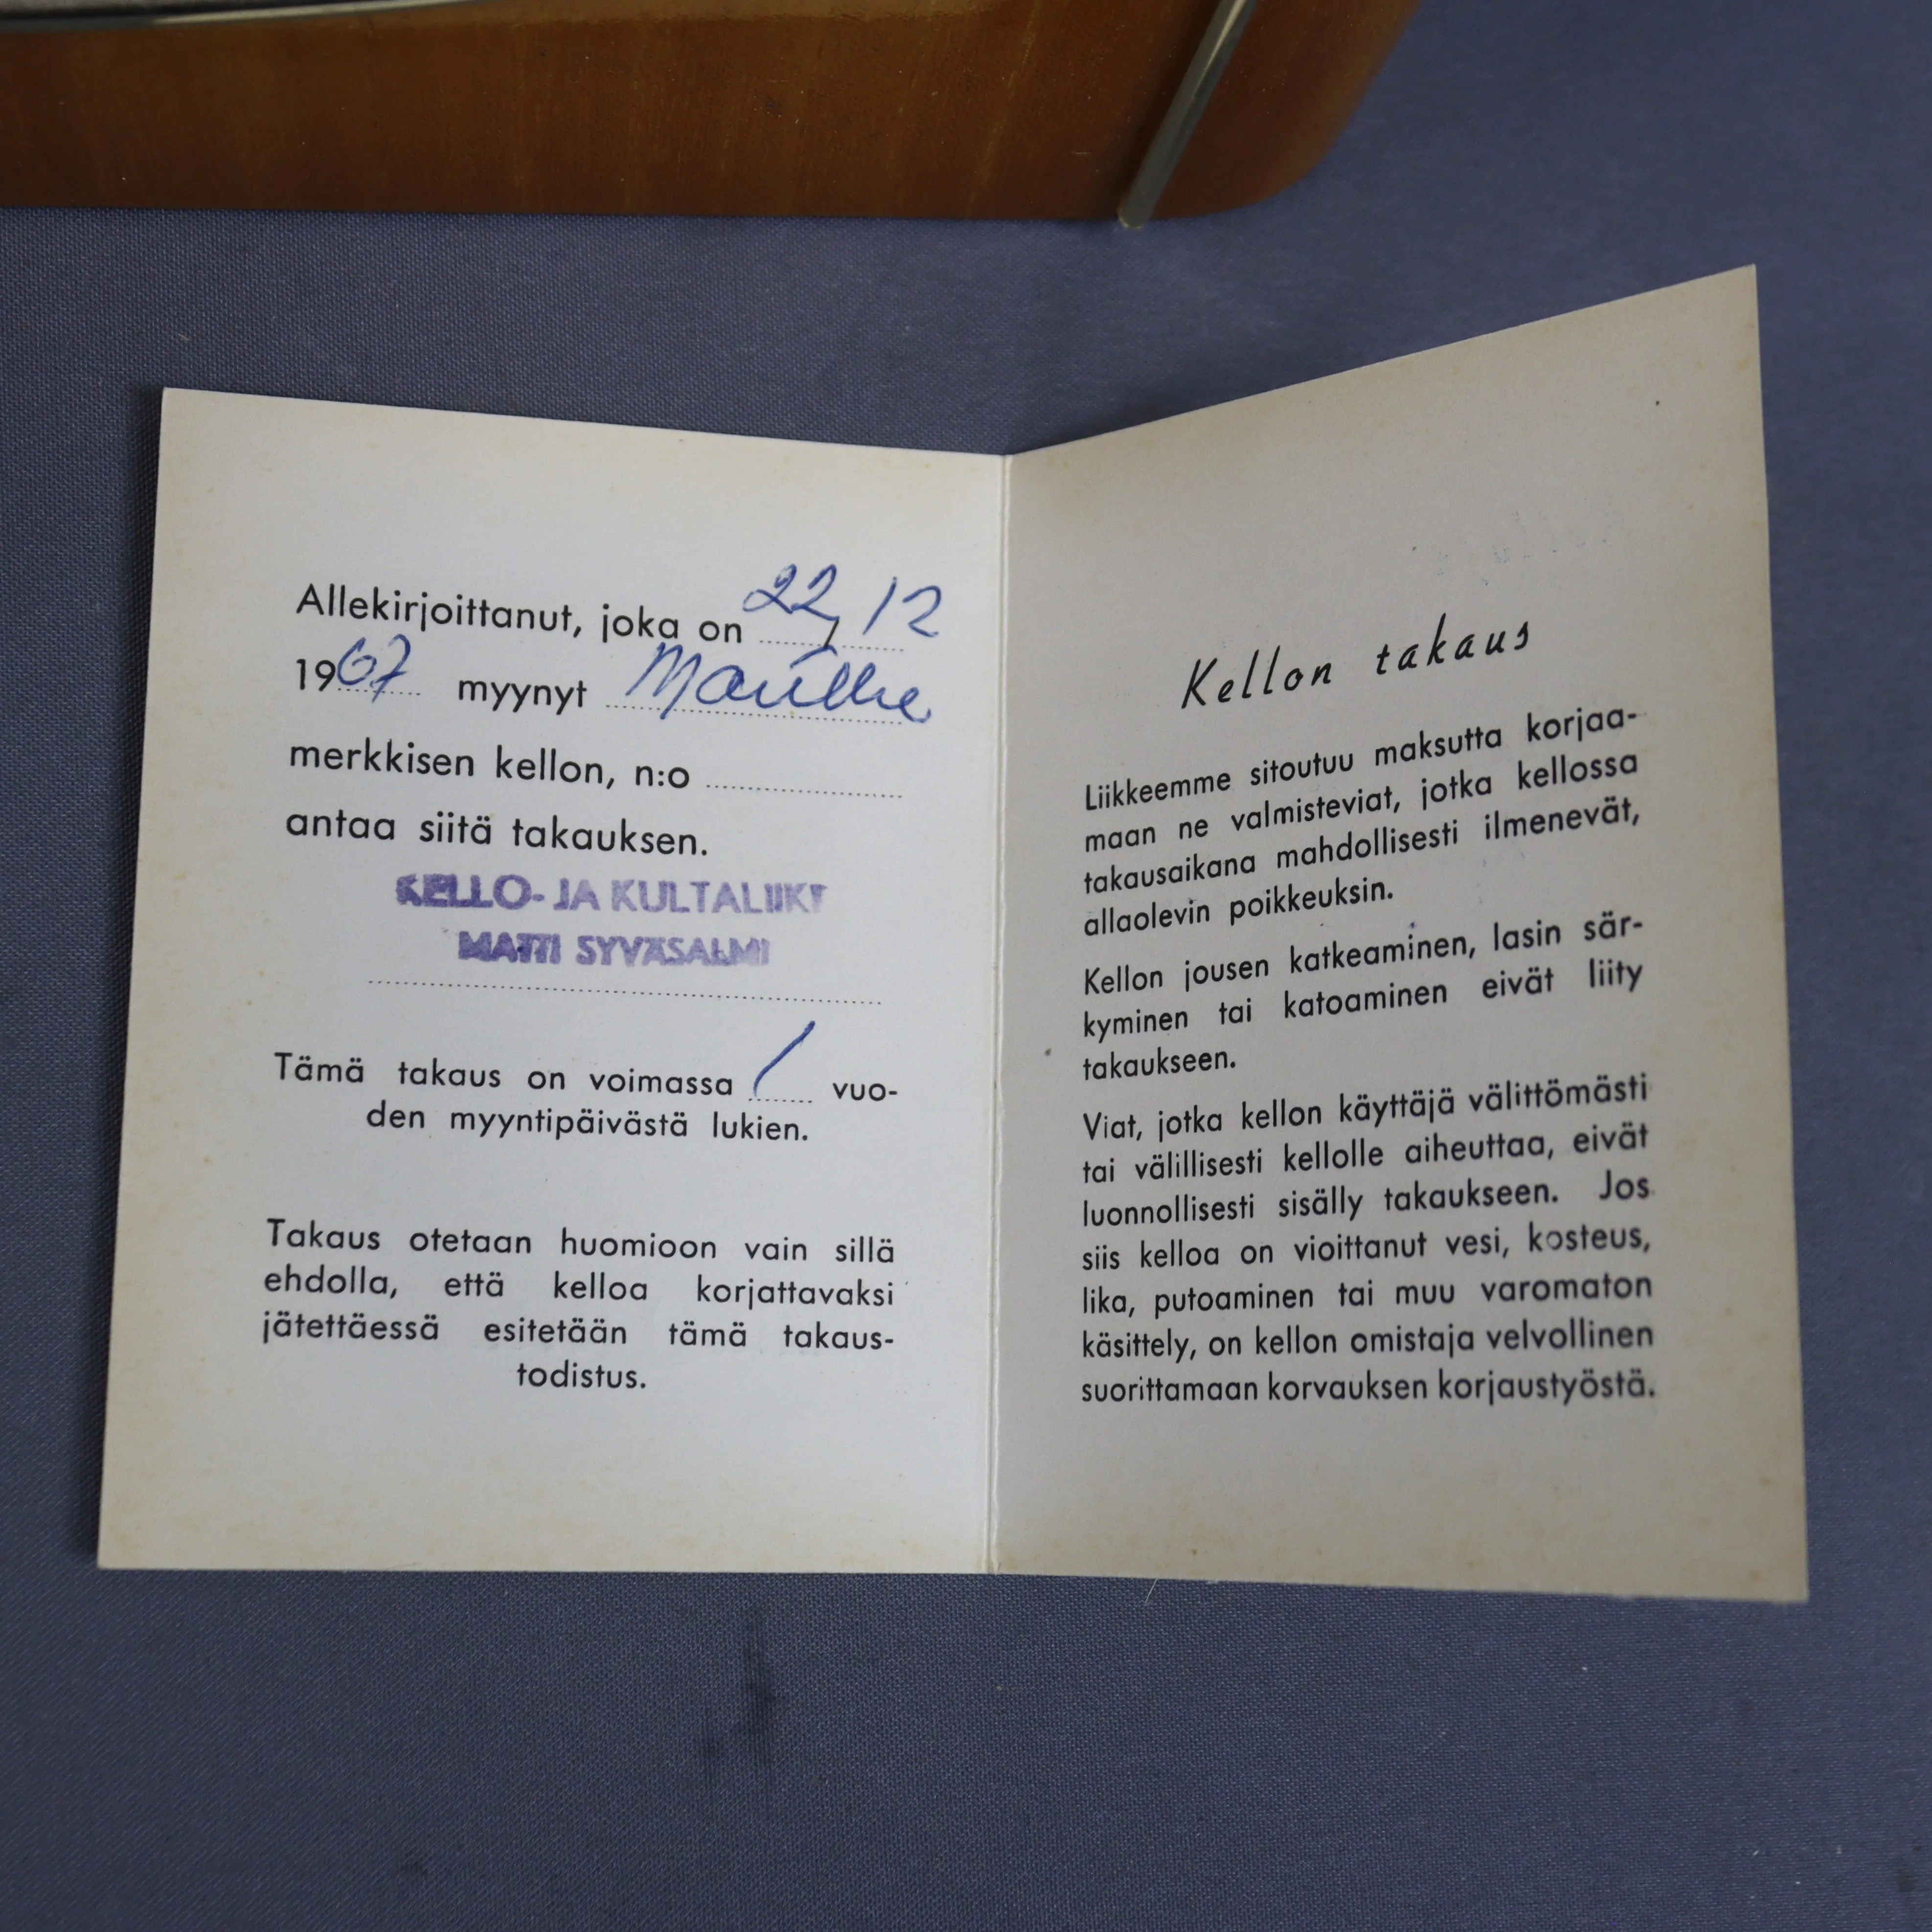 Allekirjoittanut, joka on 22/12
1967 myynyt
merkkisen kellon, n:o
antaa siitä takauksen.
KELLO- JA KULTALIIKE
MATTI SYVÄSALMI
Tämä takaus on voimassa 1 vuo-
den myyntipäivästä lukien.
Takaus otetaan huomioon vain sillä
ehdolla, että kelloa korjattavaksi
jätettäessä esitetään tämä takaus-
todistus.
Kellon takaus
Liikkeemme sitoutuu maksutta korjaa-
maan ne valmisteviat, jotka kellossa
takausaikana mahdollisesti ilmenevät,
allaolevin poikkeuksin.
Kellon jousen katkeaminen, lasin sär-
kyminen tai katoaminen eivät liity
takaukseen.
Viat, jotka kellon käyttäjä välittömästi
tai välillisesti kellolle aiheuttaa, eivät
luonnollisesti sisälly takaukseen. Jos
siis kelloa on vioittanut vesi, kosteus,
lika, putoaminen tai muu varomaton
käsittely, on kellon omistaja velvollinen
suorittamaan korvauksen korjaustyöstä.